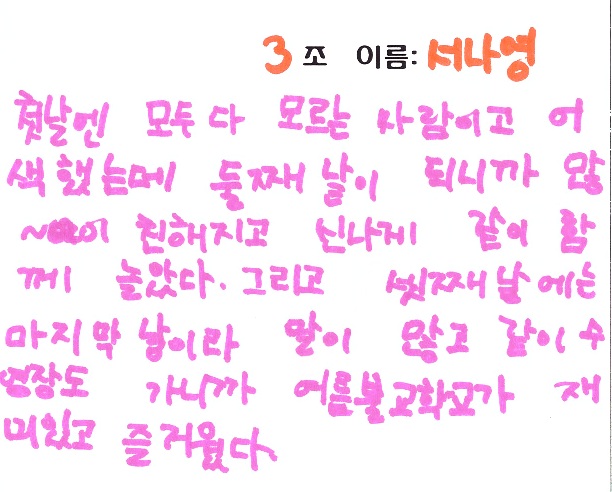 3 조 이름: 서나영
첫날엔 모두다 모르는 사람이고 어
색했는데 둘째날이 되니까 많
이 친해지고 신나게 같이 함
께 놀았다. 그리고 셋째날에는
마지막 날이라 말이 많고 같이 수
영장도 가니까 여름불교학교가 재
미있고 즐거웠다.